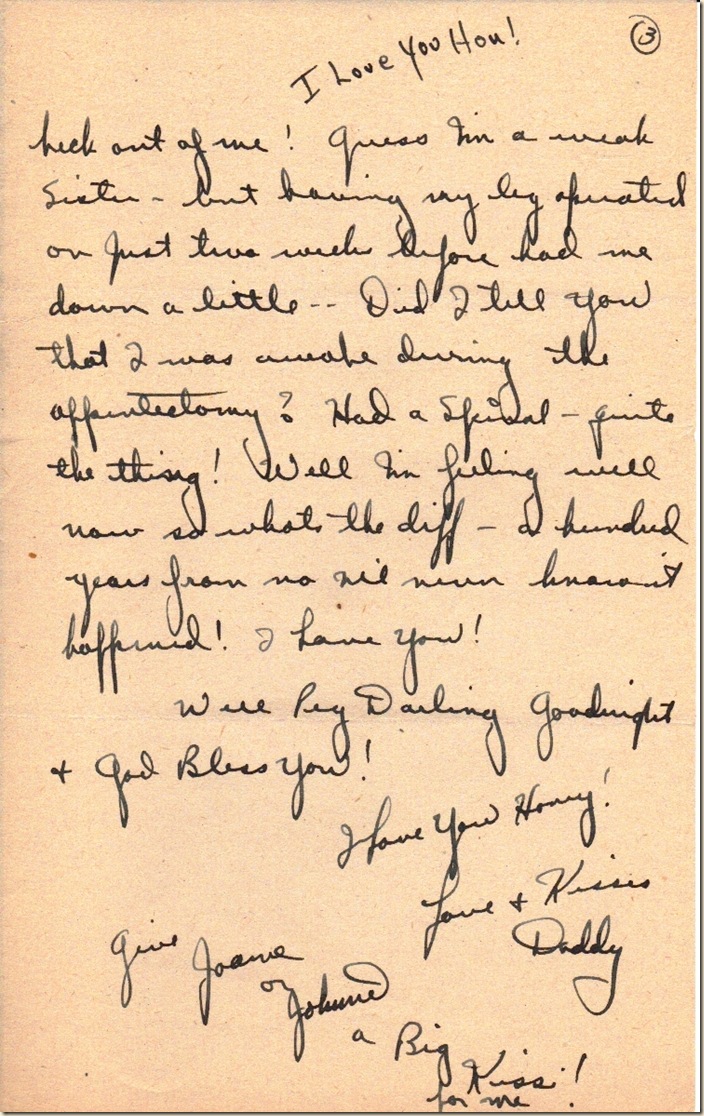 I Love You Hon!
3
heck out of me! Guess I'm a weak
Sister - but having my leg operated
on just two weeks before had me
down a little -- Did I tell you
that I was awake during the
appentectomy? Had a Spinal - quite
the thing! Well I'm feeling well
now so whats the diff - a hundred
years from no we'll never know it
happened! I love you!
Well Peg Darling Goodnight
+ God Bless You!
I Love You Honey!
Love + Kisses
Daddy
Give Joanne
or Johnnie
a Big
Kiss!
for me!